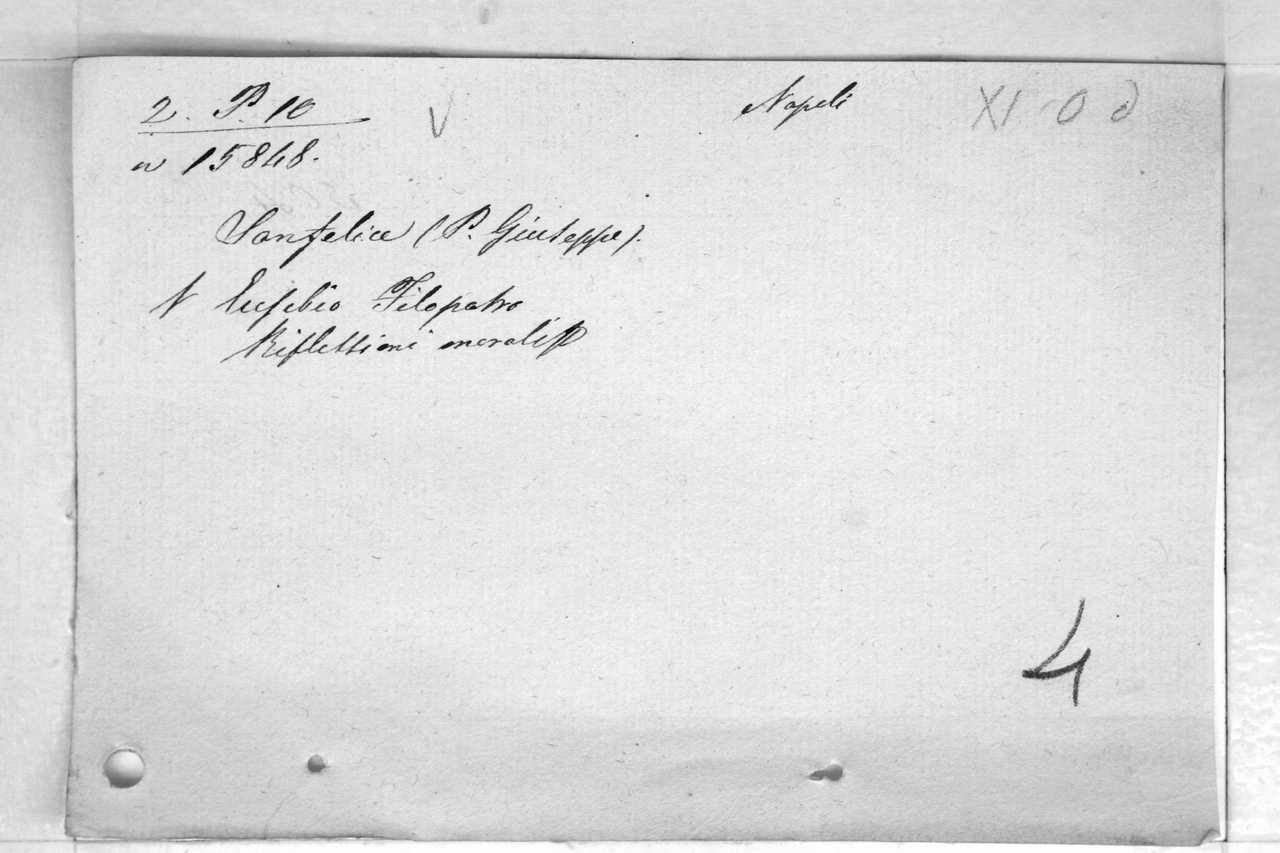 2. P. 10
Napoli
XI O
n 15848.
Sanfelice (P. Giuseppe).
Eusebio Filopatro
Riflessioni morali
4